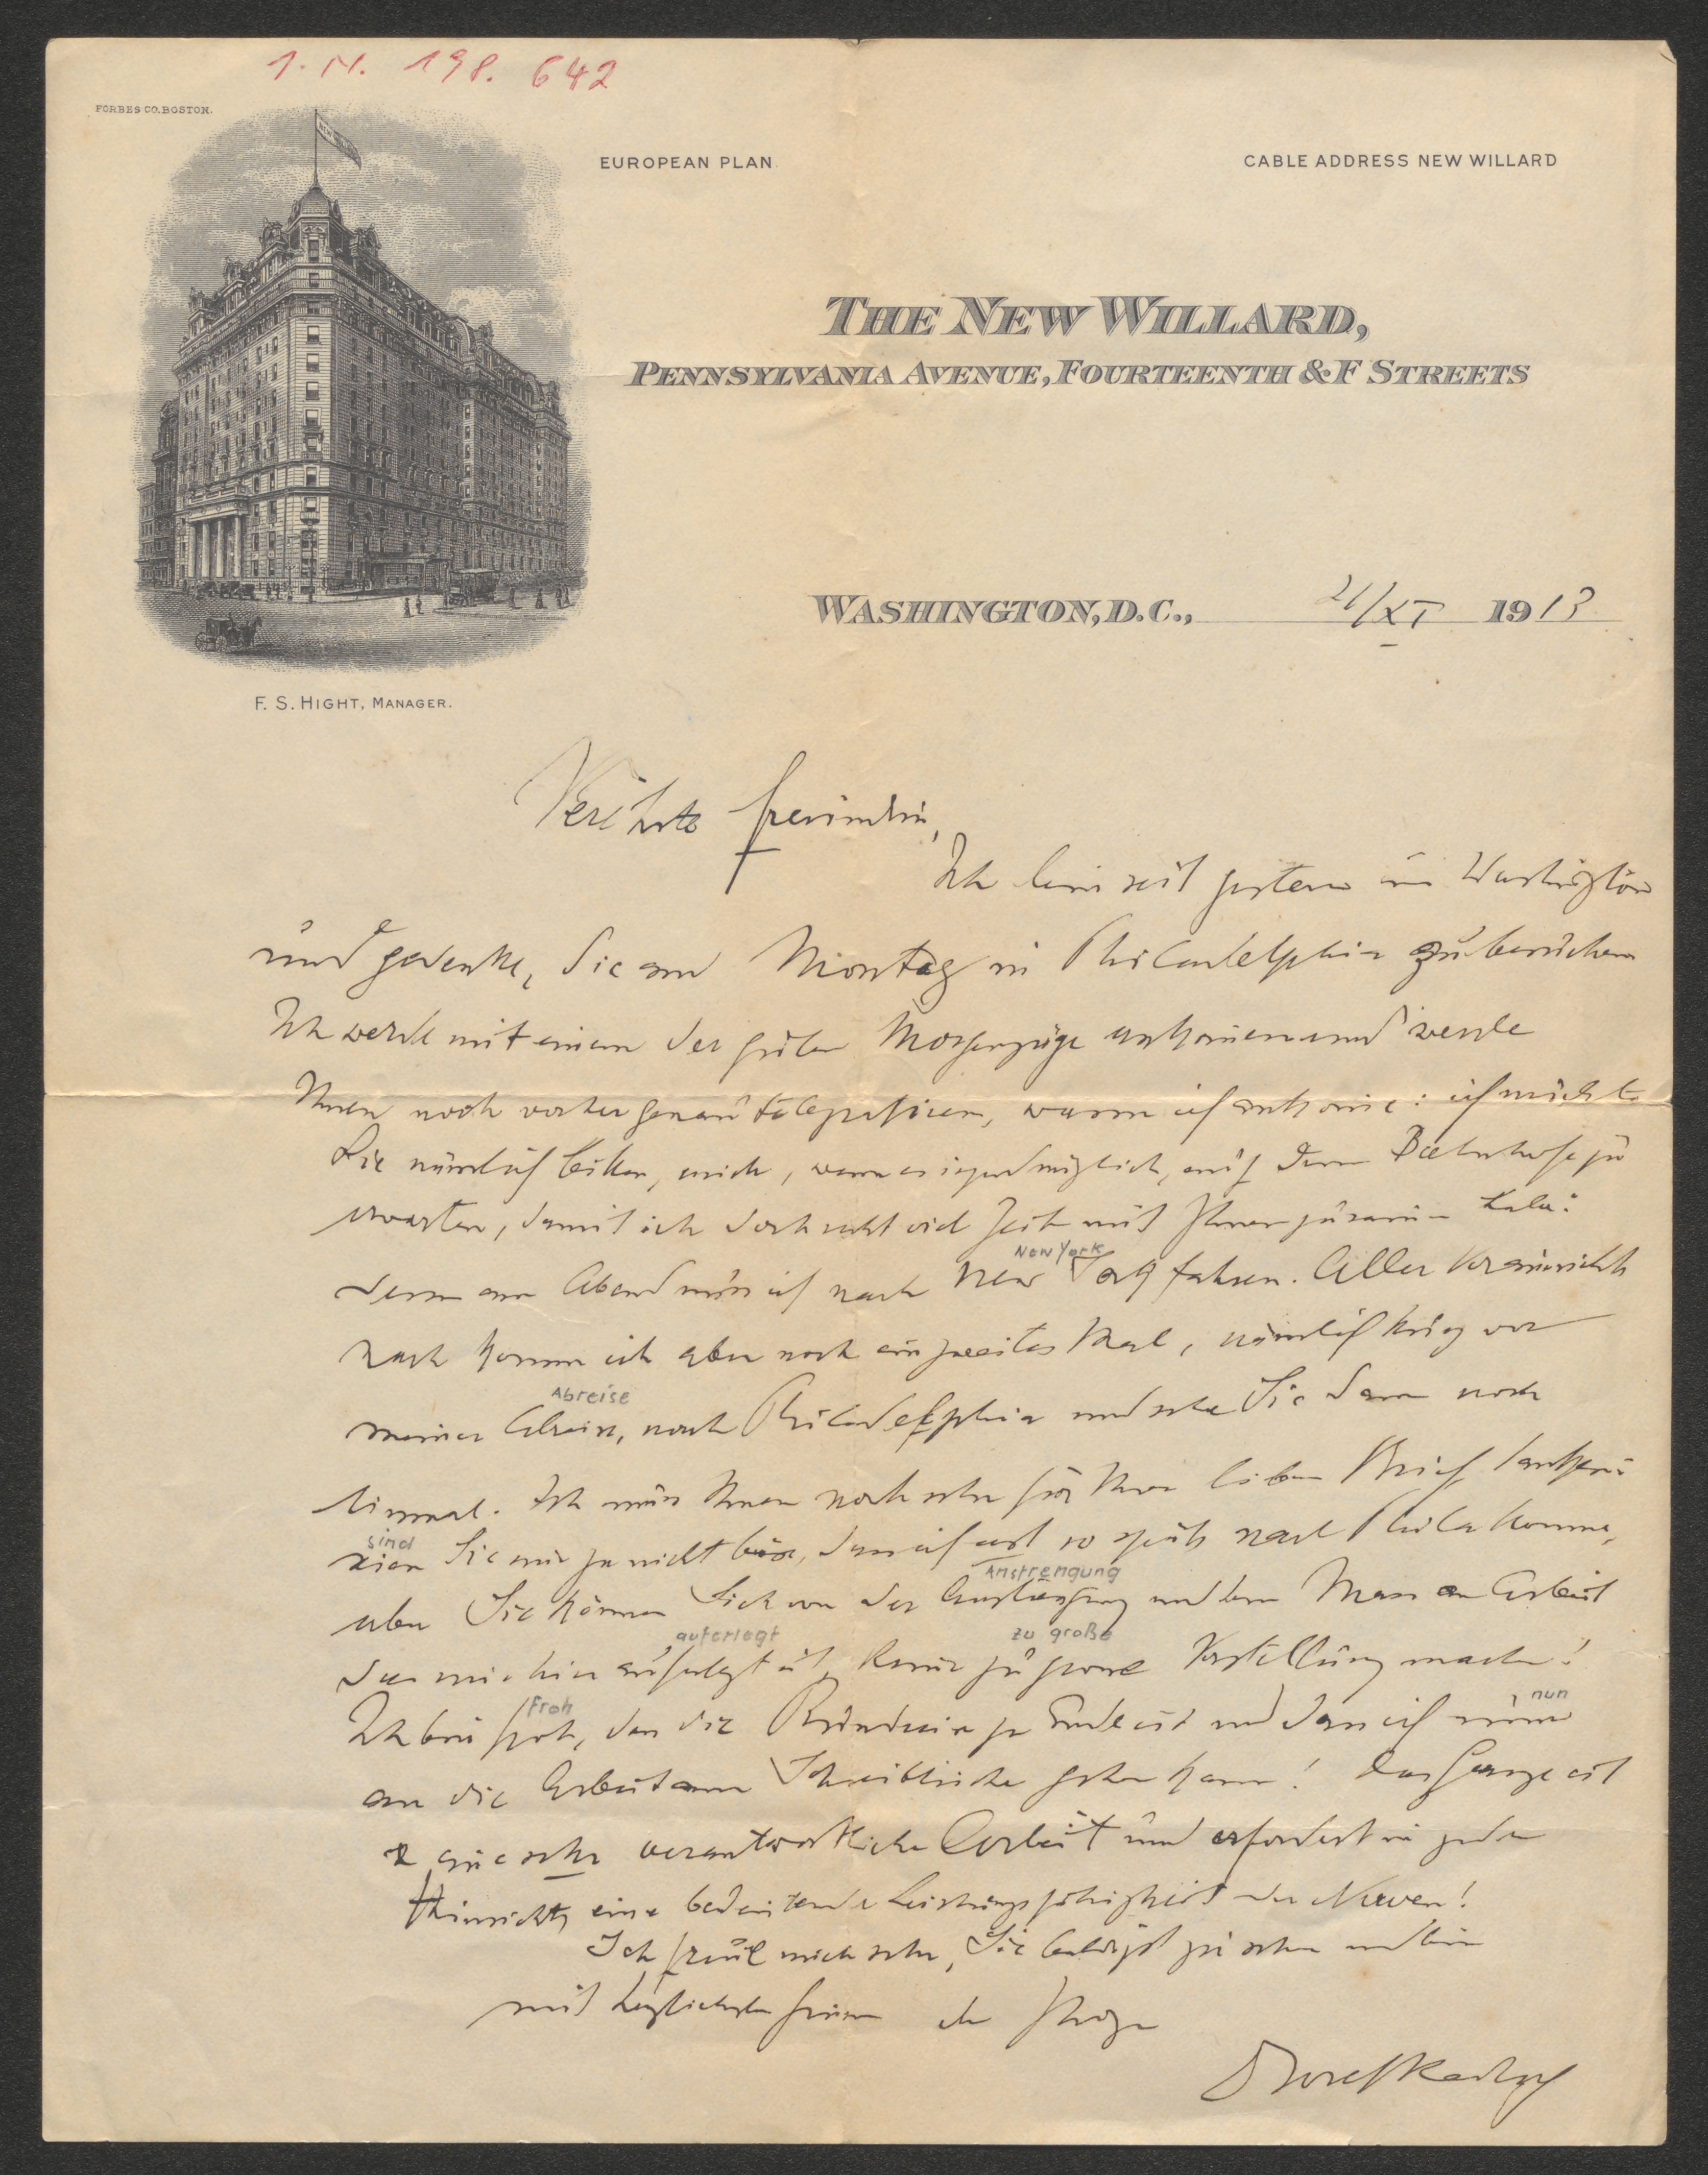 1. N. 198. 642
FORBES CO. BOSTON.
EUROPEAN PLAN.
CABLE ADDRESS NEW WILLARD
THE NEW WILLARD,
PENNSYLVANIA AVENUE, FOURTEENTH & F STREETS
WASHINGTON, D.C., 21/XI 1913
F. S. HIGHT, MANAGER.
Verehrte Freundin,
Ich bin seit gestern in Washington
und gedenke, Sie am Montag in Philadelphia zu besuchen
Ich werde mit einem der guten Morgenzüge ankommen und werde
Ihnen noch vorher genau telegrafieren, wann ich ankomme: ich möchte
Sie nämlich bitten, mich, wenn es irgend möglich, auf dem Bahnhofe zu
erwarten, damit ich doch recht viel Zeit mit Ihnen zusammen habe:
New York
denn am Abend muss ich nach New York fahren. Aller Voraussicht
nach komme ich aber noch ein zweites Mal, nämlich kurz vor
Abreise
meiner Abreise, nach Philadelphia und sehe Sie dann noch
einmal. Ich muss Ihnen noch sehr für Ihren lieben Brief danken:
sind
seien Sie mir ja nicht böse, dass ich erst so spät nach Phila komme,
Anstrengung
aber Sie können Sich von der Anstrengung und dem Mass an Arbeit
auferlegt zu große
das mir hier auferlegt ist, keine zu grosse Vorstellung machen!
froh nun
Ich bin froh, dass die Rundreise zu Ende ist und dass ich nun
an die Arbeit am Schreibtische gehen kann! Das Ganze ist
eine sehr verantwortliche Arbeit und erfordert in jeder
Hinsicht eine bedeutende Leistungsfähigkeit der Nerven!
Ich freue mich sehr, Sie baldigst zu sehen und bin
mit herzlichsten Grüssen der Ihrige